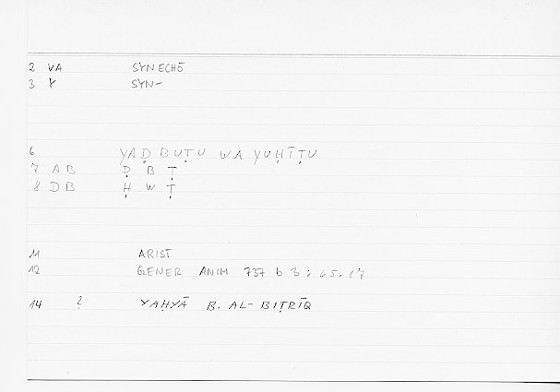 2 VA SYNECHŌ
3 Y SYN-
6 YAḌBUṬU WA YUḤĪṬU
7 AB Ḍ B Ṭ
8 DB Ḥ W Ṭ
11 ARIST
12 GENER ANIM 737 b 3;
14 ? YAḤYĀ B. AL-BIṬRĪQ